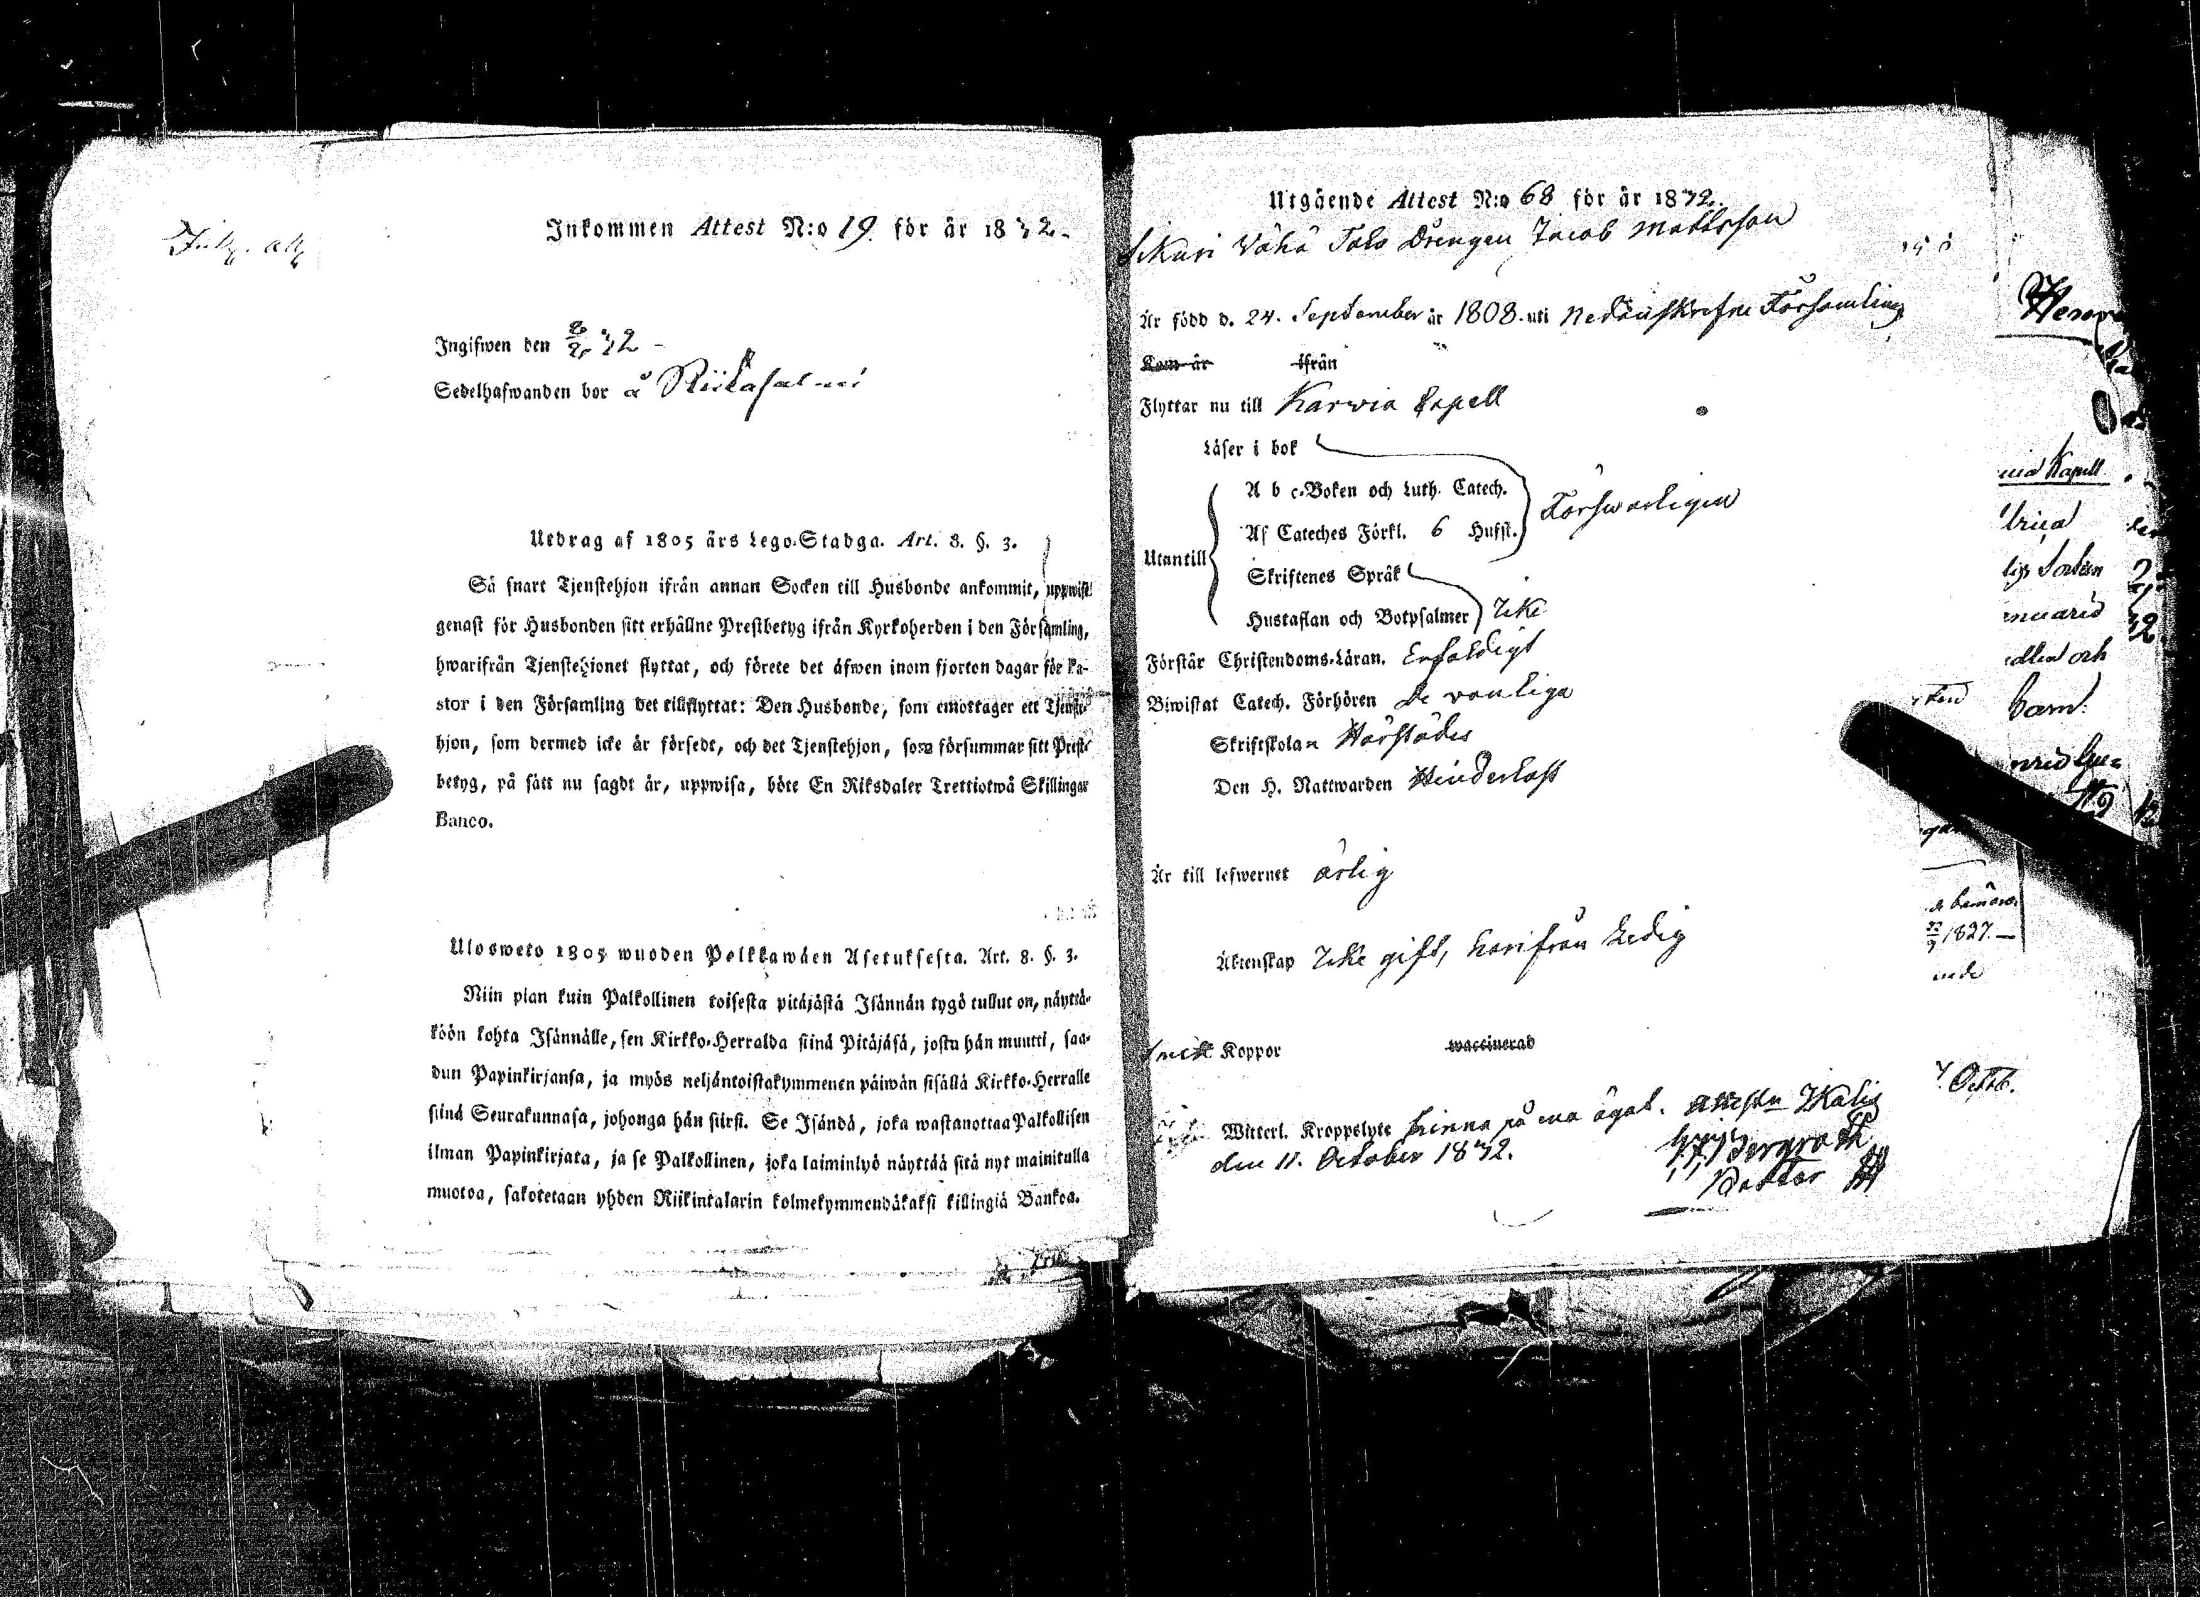 Inkommen Attest N:o 19. för år 1832.
Ingifwen den 8/2 32
Sedelhafwanden bor å
Utdrag af 1805 års Lego-Stadga. Art. 8. §. 3.
Så snart Tjenstehjon ifrån annan Socken till Husbonde ankommit, uppwise
genast för Husbonden sitt erhållne Prestbetyg ifrån Kyrkoherden i den Församling,
hwarifrån Tjenstehjonet flyttat, och förete det äfwen inom fjorton dagar för Pa-
stor i den Församling det tillflyttat: Den Husbonde, som emottager ett Tjenste-
hjon, som dermed icke är försedt, och det Tjenstehjon, som försummar sitt Prest-
betyg, på sätt nu sagdt är, uppwisa, böte En Riksdaler Trettiotwå Skillingar
Banco.
Ulosweto 1805 wuoden Palkkawäen Asetuksesta. Art. 8. §. 3.
Niin pian kuin Palkollinen toisesta pitäjästä Isännän tygö tullut on, näyttä-
köön kohta Isännälle, sen Kirkko-Herralda siinä Pitäjäsä, josta hän muutti, saa-
dun Papinkirjansa, ja myös neljäntoistakymmenen päiwän sisällä Kirkko-Herralle
siinä Seurakunnasa, johonga hän siirsi. Se Isändä, joka wastanottaa Palkollisen
ilman Papinkirjata, ja se Palkollinen, joka laiminlyö näyttää sitä nyt mainitulla
muotoa, sakotetaan yhden Riikintalarin kolmekymmendäkaksi killingiä Bankoa.
Utgående Attest N:o 68 för år 1832.
Wähä Talo Drengen Jacob Mattsson
Är född d. 24. September år 1808. uti nedanskrefne Församling
Kom år ifrån
Flyttar nu till Karwia Capell
Läser i bok
A b c-Boken och Luth. Catech.
Af Cateches Förkl. 6 Hufst. Förswarligen
Utantill
Skriftenes Språk
Hustaflan och Botpsalmer Icke
Förstår Christendoms-Läran. Enfaldigt
Biwistat Catech. Förhören de wanliga
Skriftskolan Härstädes
Den H. Nattwarden Hinderlöst
Är till lefwernet ärlig
Äktenskap Icke gift, härifrån Ledig
Koppor waccinerad
Witterl. Kroppslyte hinna på ena ögat. Attesten Ikalis
den 11. October 1832.
Pastor
Kapell
barn.
1827.
Octob.